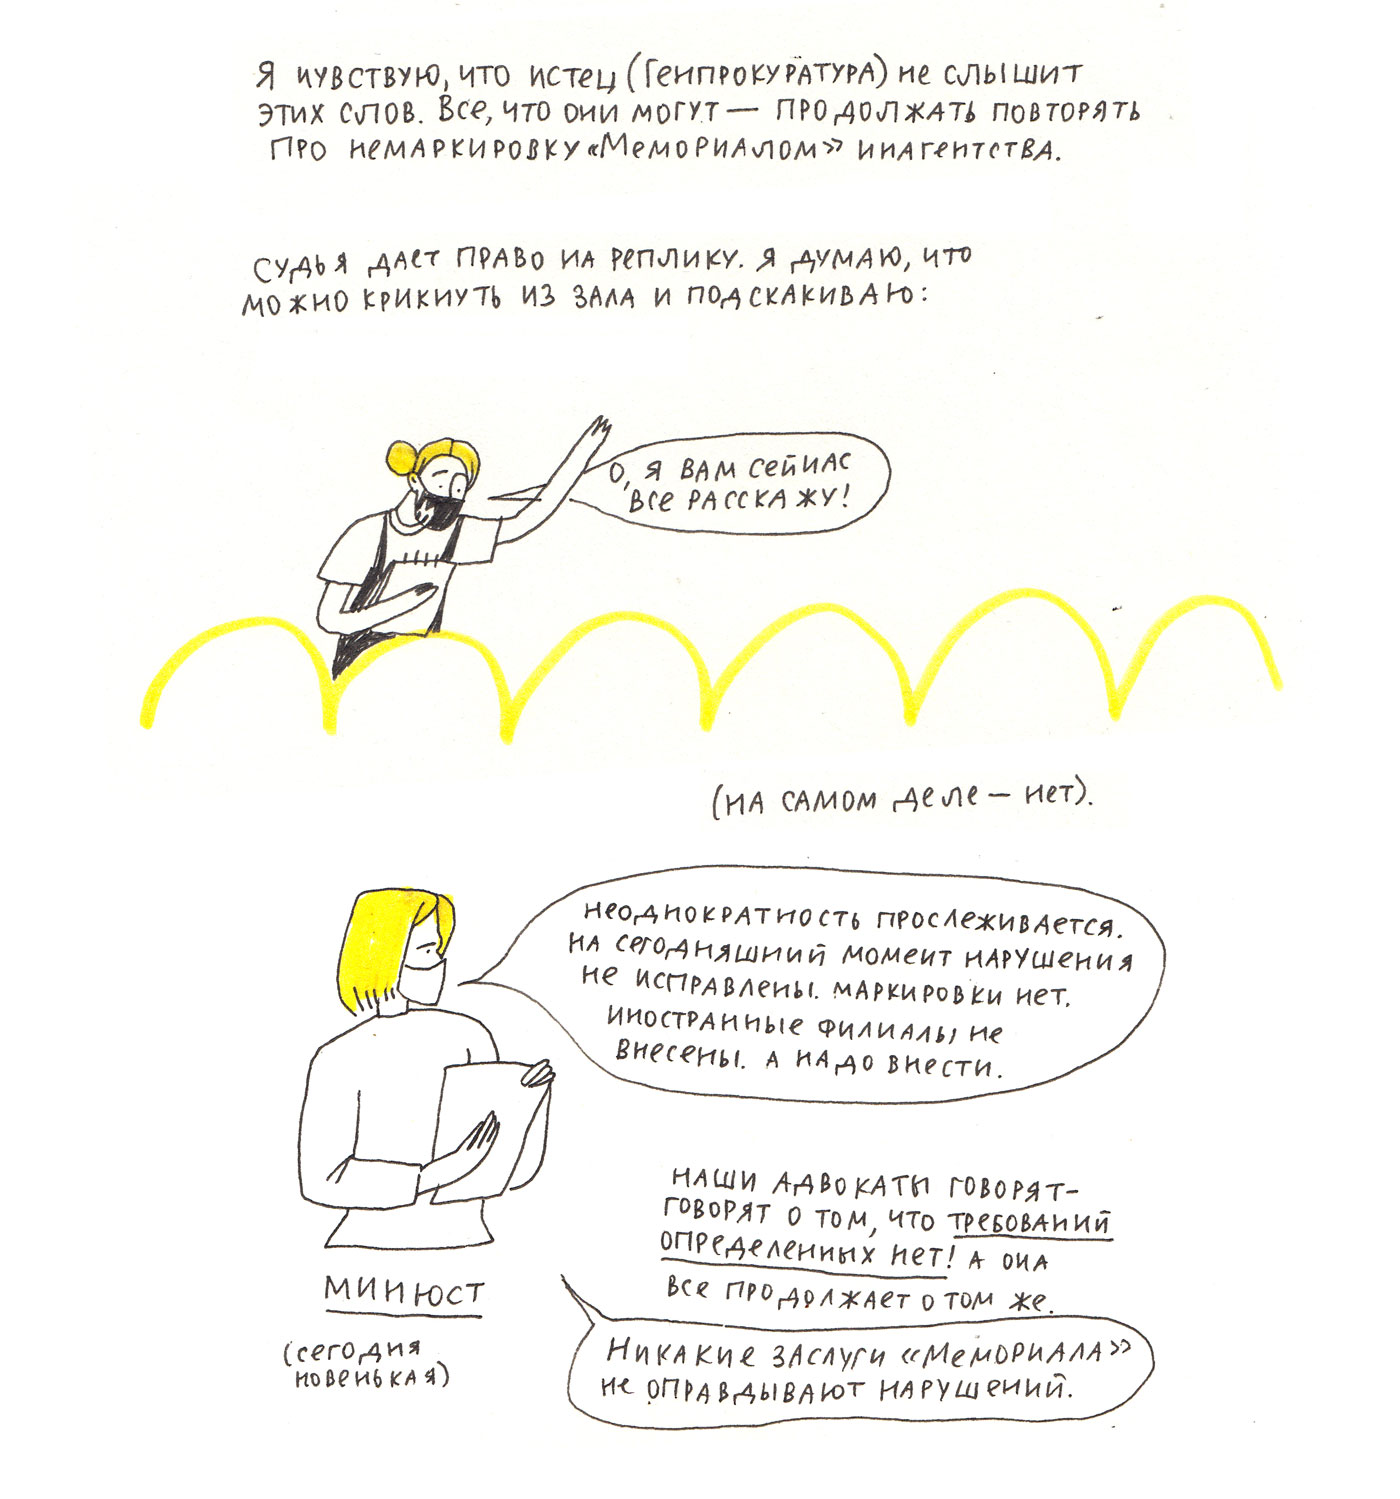 Я чувствую, что истец (Генпрокуратура) не слышит
этих слов. Все, что они могут — продолжать повторять
про немаркировку «Мемориалом» инагентства.
Судья дает право на реплику. Я думаю, что
можно крикнуть из зала и подскакиваю:
О, я вам сейчас
все расскажу!
(на самом деле — нет).
Неоднократность прослеживается.
На сегодняшний момент нарушения
не исправлены. Маркировки нет.
Иностранные филиалы не
внесены. А надо внести.
Наши адвокаты говорят-
говорят о том, что требований
определенных нет! А она
все продолжает о том же.
Минюст
(сегодня
новенькая)
Никакие заслуги «Мемориала»
не оправдывают нарушений.